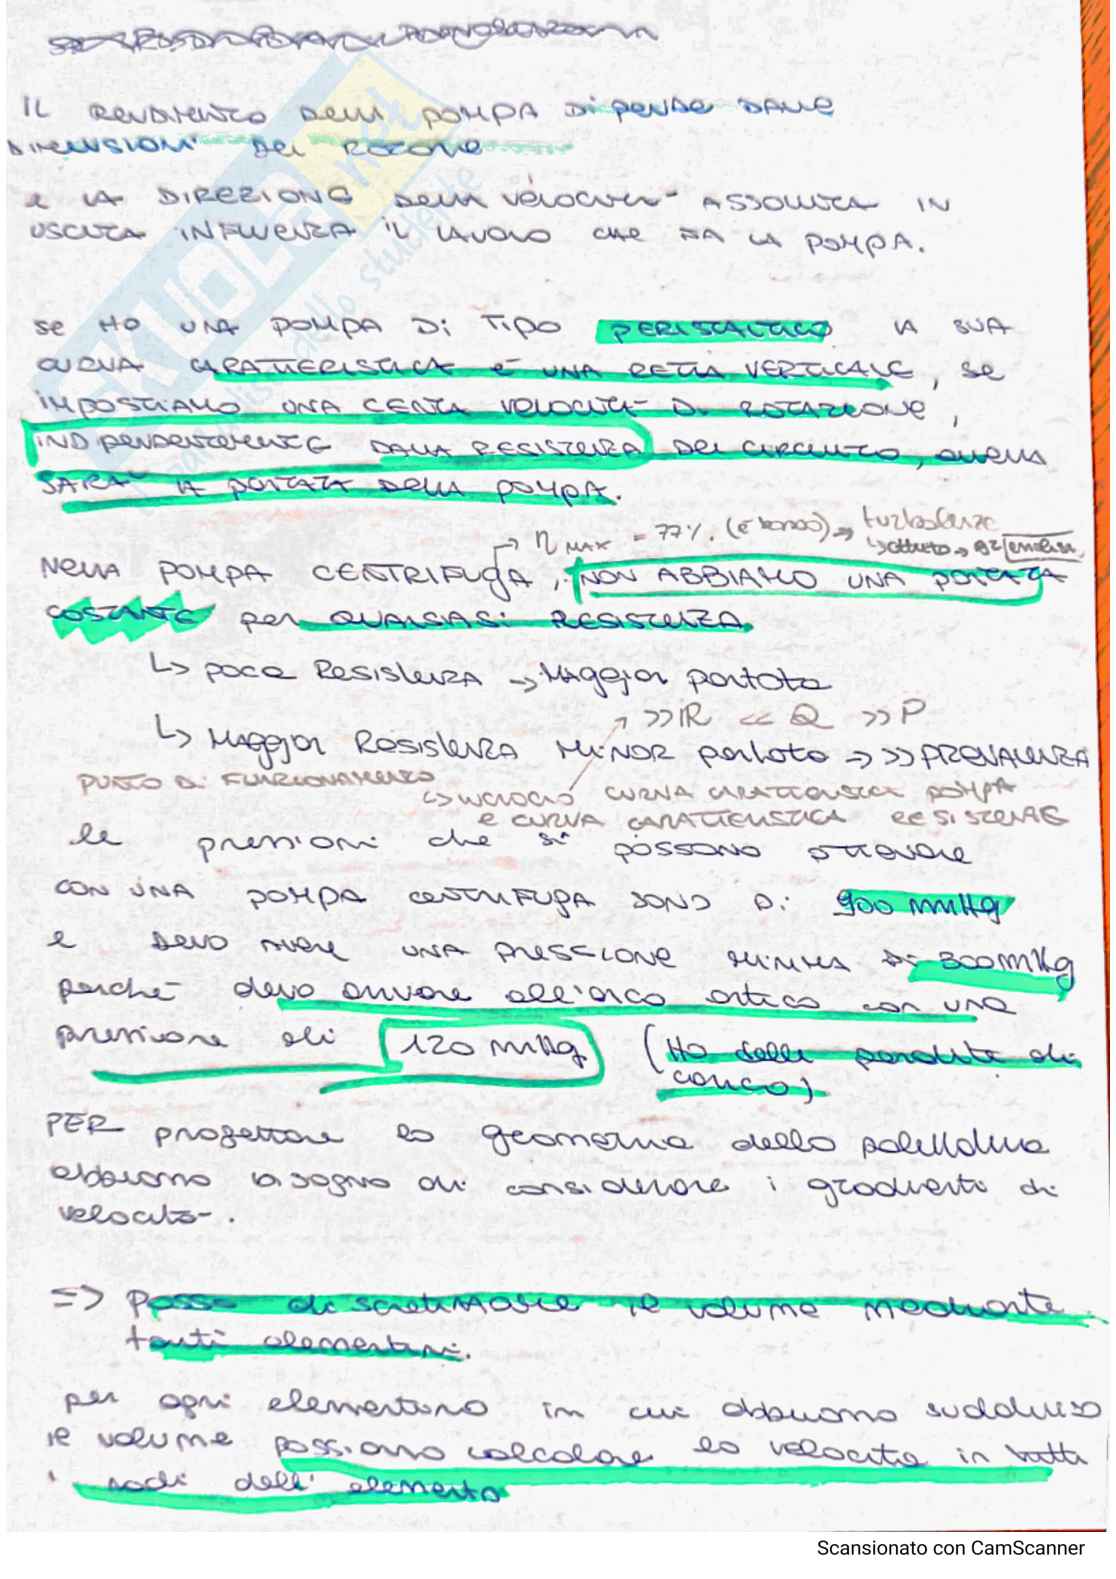 IL RENDIMENTO DELLA POMPA DIPENDE DALLE
DIMENSIONI DEL ROTORE
e LA DIREZIONE DELLA VELOCITA' ASSOLUTA IN
USCITA INFLUENZA IL LAVORO CHE FA LA POMPA.
se HO UNA POMPA DI TIPO PERISTALTICO LA SUA
CURVA CARATTERISTICA È UNA RETTA VERTICALE, se
IMPOSTIAMO UNA CERTA VELOCITA' DI ROTAZIONE,
INDIPENDENTEMENTE DALLA RESISTENZA DEL CIRCUITO, QUELLA
SARA' LA PORTATA DELLA POMPA.
→ η MAX = 77%. (è) → turbolenze
↳ attrito →
NELLA POMPA CENTRIFUGA, NON ABBIAMO UNA PORTATA
COSTANTE per QUALSIASI RESISTENZA.
↳ poca Resistenza → Maggior portata
↗ >>R << Q >>P
↳ Maggior Resistenza MINOR portata → >> PREVALENZA
PUNTO DI FUNZIONAMENTO
↳ incrocio CURVA CARATTERISTICA POMPA
e CURVA CARATTERISTICA RESISTENZE
le pressioni che si possono ottenere
CON UNA POMPA CENTRIFUGA SONO DI 900 mmHg
e DEVO AVERE UNA PRESSIONE MINIMA DI 300mmHg
perchè devo arrivare all'arco aortico con una
pressione di 120 mmHg (Ho delle perdite di
carico)
PER progettare la geometria della palettatura
abbiamo bisogno di considerare i gradienti di
velocità.
=> Posso discretizzare il volume mediante
tanti elementini.
per ogni elementino in cui abbiamo suddiviso
il volume possiamo calcolare la velocità in tutti
i nodi dell'elemento
SKUOLA.net
Scansionato con CamScanner